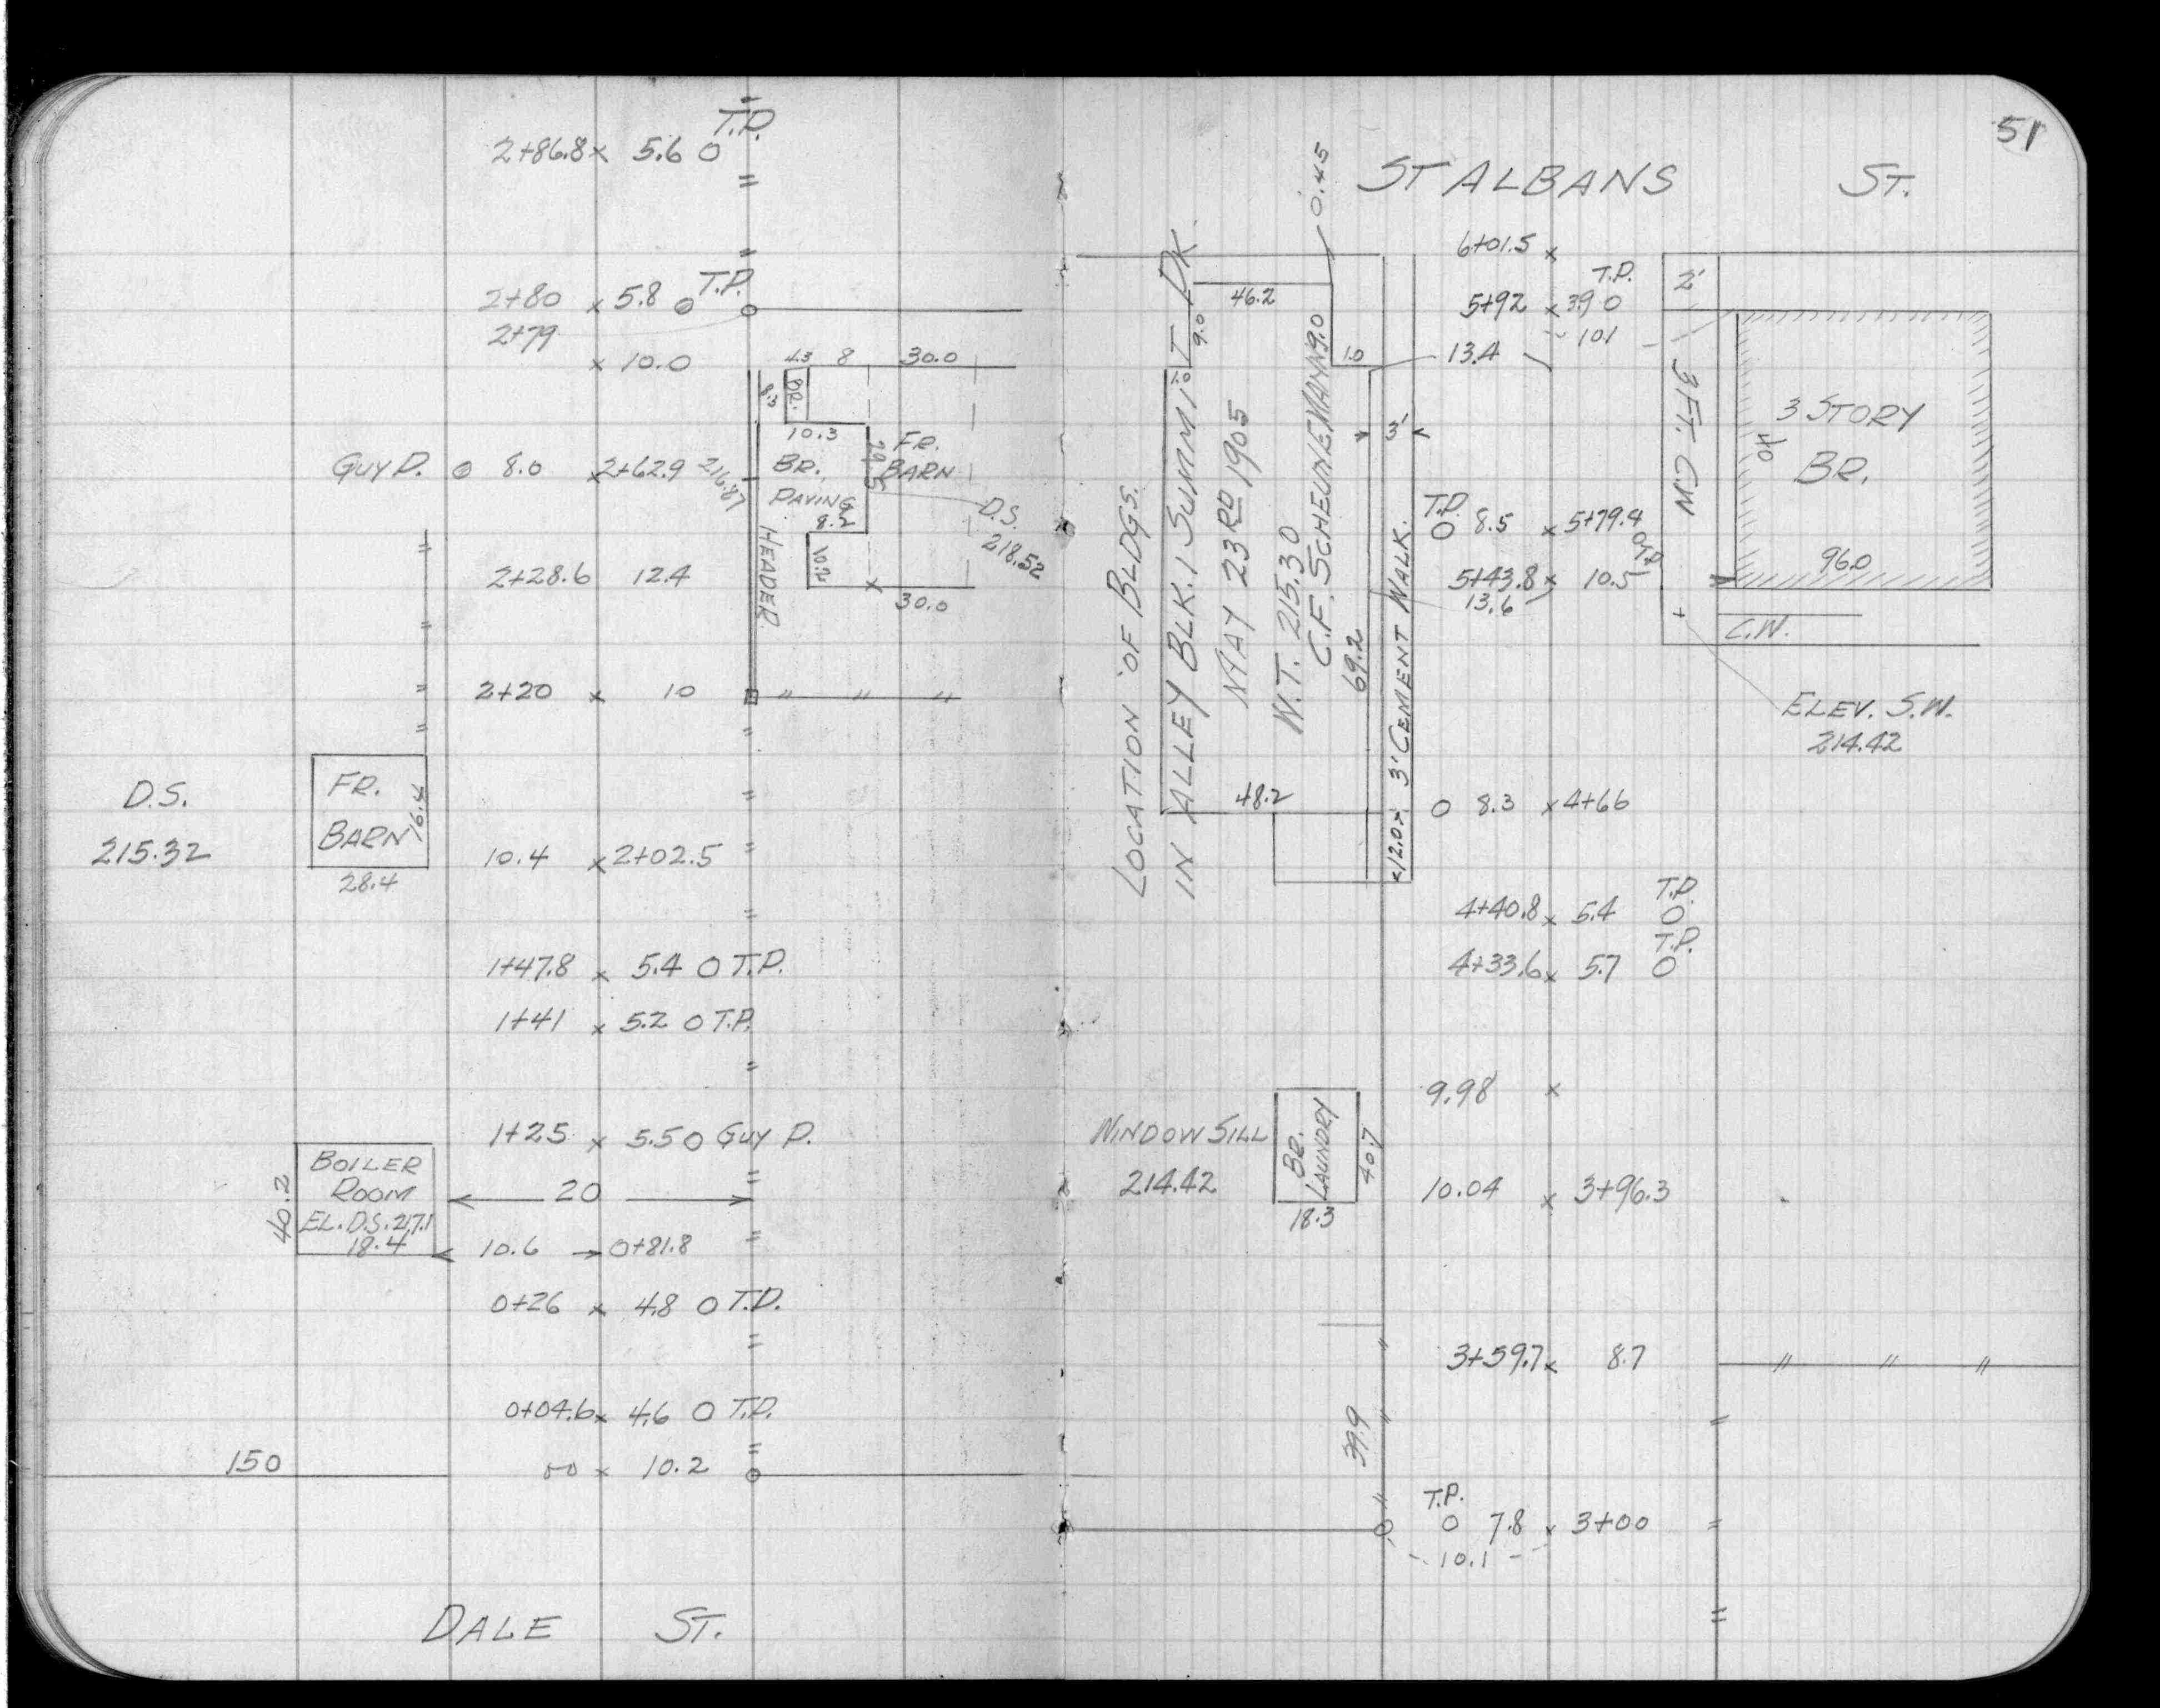 T.P.
2+86.8 x 5.6 O
2+80 x 5.8 O T.P.
2+79
x 10.0
4.3 8 30.0
8.3 BR.
10.3
GUY P. O 8.0 x 2+62.9 216.87
BR.
PAVING
8.2
29.5
FR.
BARN
D.S.
218.52
HEADER
2+28.6 12.4
10.2
30.0
2+20 x 10
D.S.
215.32
FR.
BARN
16.4
28.4
10.4 x 2+02.5
1+47.8 x 5.4 O T.P.
1+41 x 5.2 O T.P.
1+25 x 5.5 O GUY P.
BOILER
ROOM
EL. D.S. 217.1
18.4
40.2
20
10.6 0+81.8
0+26 x 4.8 O T.P.
0+04.6 x 4.6 O T.P.
150
00 x 10.2
DALE ST.
51
ST ALBANS ST.
LOCATION OF BLDGS.
IN ALLEY BLK. 1 SUMMIT PK.
MAY 23RD 1905
W.T. 215.30
C.F. SCHEUNEMANN
0.45
46.2
9.0
9.0
1.0
1.0
69.2
48.2
3'
3' CEMENT WALK.
12.0
6+01.5 x
T.P.
5+92 x 3.9 O
10.1
13.4
2'
3 FT. CW
3 STORY
BR.
40
96.0
T.P.
O 8.5 x 5+79.4
O T.P.
5+43.8 x 10.5
13.6
C.W.
ELEV. S.W.
214.42
O 8.3 x 4+66
T.P.
4+40.8 x 5.4 O
T.P.
4+33.6 x 5.7 O
9.98 x
WINDOW SILL
214.42
BR.
LAUNDRY
40.7
18.3
10.04 x 3+96.3
3+59.7 x 8.7
39.9
T.P.
O 7.8 x 3+00
10.1